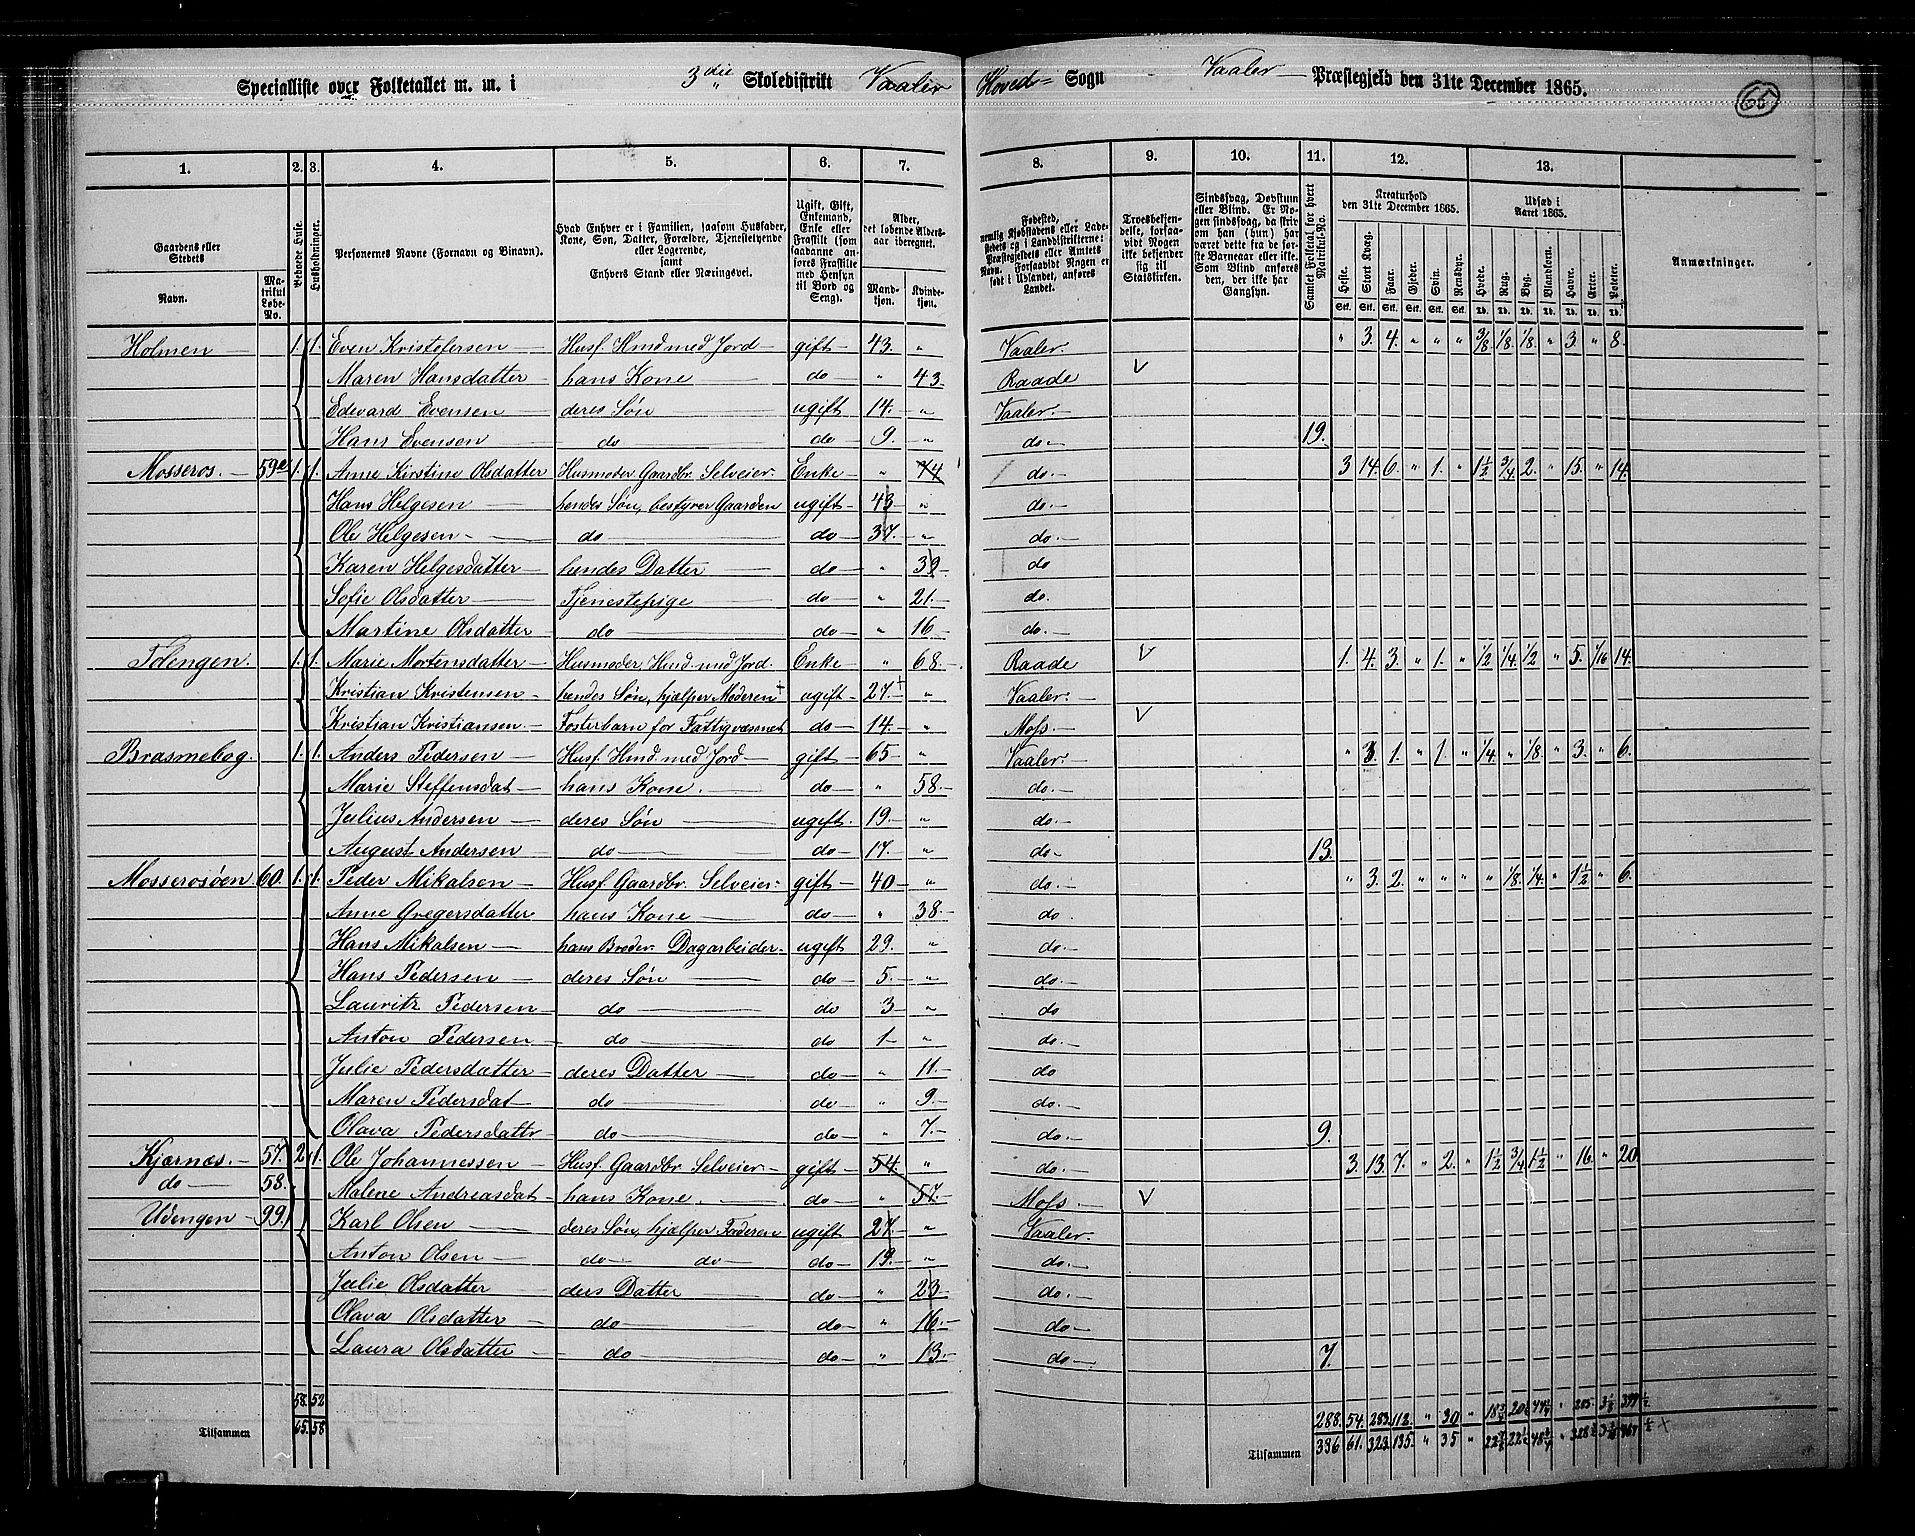 Specialliste over Folketallet m. m. i 3die Skoledistrikt Vaaler Hoved= Sogn Vaaler Præstegjeld den 31te December 1865.
66
1. 2. 3. 4. 5. 6. 7. 8. 9. 10. 11. 12. 13.
Gaardens eller Stedets
Navn.
Matrikul Løbe-No.
Beboede Huse.
Husholdninger.
Personernes Navne (Fornavn og Binavn).
Hvad Enhver er i Familien, saasom Husfader, Kone, Søn, Datter, Forældre, Tjenestetyende eller Logerende, samt Enhvers Stand eller Næringsvei.
Ugift, Gift, Enkemand, Enke eller Fraskilt (som saadanne anføres Fraskilte med Hensyn til Bord og Seng).
Alder, det løbende Alders-aar iberegnet.
Mandkjøn. Kvindekjøn.
Fødested, nemlig Kjøbstadens eller Ladestedets og i Landdistrikterne: Præstegjeldets eller Amtets Navn. Forsaavidt Nogen er født i Udlandet, anføres Landet.
Troesbekjendelse, forsaavidt Nogen ikke bekjender sig til Statskirken.
Sindssvag, Døvstum eller Blind. Er Nogen sindssvag, da skriv om han (hun) har været dette fra de første Barneaar eller ikke. Som Blind anføres den, der ikke har Gangsyn.
Samlet Folketal for hvert Matrikul-No.
Kreaturhold den 31te December 1865.
Heste. Stort Kvæg. Faar. Gjeder. Svin. Rensdyr.
Udsæd i Aaret 1865.
Hvede. Rug. Byg. Blandkorn. Havre. Erter. Poteter.
Anmærkninger.
Holmen 1. 1. Even Kristofersen Husf. Hmd med Jord gift 43. " Vaaler. " 3. 4. " " " 3/8 1/8 1/8 " 3 " 8.
Maren Hansdatter hans Kone do " 43 Raade V
Edevard Evensen deres Søn ugift 14. " Vaaler.
Hans Evensen do do 9. " do 19.
Mosseros. 59e 1. 1. Anne Kirstine Olsdatter Husmoder Gaardbr. Selveier. Enke " 74 do. 3 14. 6. " 1. " 1½ ¾ 2. " 15. " 14.
Hans Helgesen hendes Søn, bestyrer Gaarden ugift 43 " do.
Ole Helgesen do do 37. " do.
Karen Helgesdatter hendes Datter do " 39 do
Sofie Olsdatter Tjenestepige do " 21. do.
Martine Olsdatter do do " 16 do.
Idengen. 1. 1. Marie Mortensdatter Husmoder, Hmd. med Jord. Enke " 68. Raade V 1. 4. 3. " 1. " ½ ¼ ½ " 5. 1/16 14.
Kristian Kristensen hendes Søn, hjælper Moderen ugift 27. " Vaaler.
Kristian Kristiansen. Fosterbarn for Fattigvæsenet do 14. " Moss. V
Brasmebog. 1. 1. Anders Pedersen Husf. Hmd. med Jord gift 65 " Vaaler. " 3. 1. " 1. " ¼ " 1/8. " 3. " 6.
Marie Steffensdat hans Kone. do " 58. do.
Julius Andersen deres Søn ugift. 19. " do.
August Andersen do do 17. " do 13.
Mosserosøen 60. 1. 1. Peder Mikalsen Husf. Gaardbr. Selveier gift 40 " do. " 3. 2. " " " " 1/8. ¼. " 1½ " 6.
Anne Gregersdatter hans Kone do " 38. do.
Hans Mikalsen hans Broder Dagarbeider ugift 29. " do.
Hans Pedersen deres Søn do 5. " do.
Lauritz Pedersen do do 3 " do
Anton Pedersen do do 1 " do.
Julie Pedersdatter deres Datter do " 11. do
Maren Pedersdat do do " 9. do.
Olava Pedersdattr do do " 7. do. 9.
Kjærnæs. 57. 2. 1. Ole Johannessen Husf. Gaardbr Selveier gift 54. " do. 3. 13. 7. " 2. " 1½ ¾ 1½ " 16. " 20
do 58. Malene Andreasdat hans Kone. do " 57. Moss. V
Udengen 99. Karl Olsen deres Søn, hjælper Faderen ugift 27. " Vaaler.
Anton Olsen do do do 19. " do.
Julie Olsdatter ders Datter do " 23 do.
Olava Olsdatter do do " 16. do
Laura Olsdatter do do " 13. do 7.
58. 52 288. 54. 283. 112. " 30
Tilsammen 65. 58 Tilsammen 336 61. 323. 135. " 35